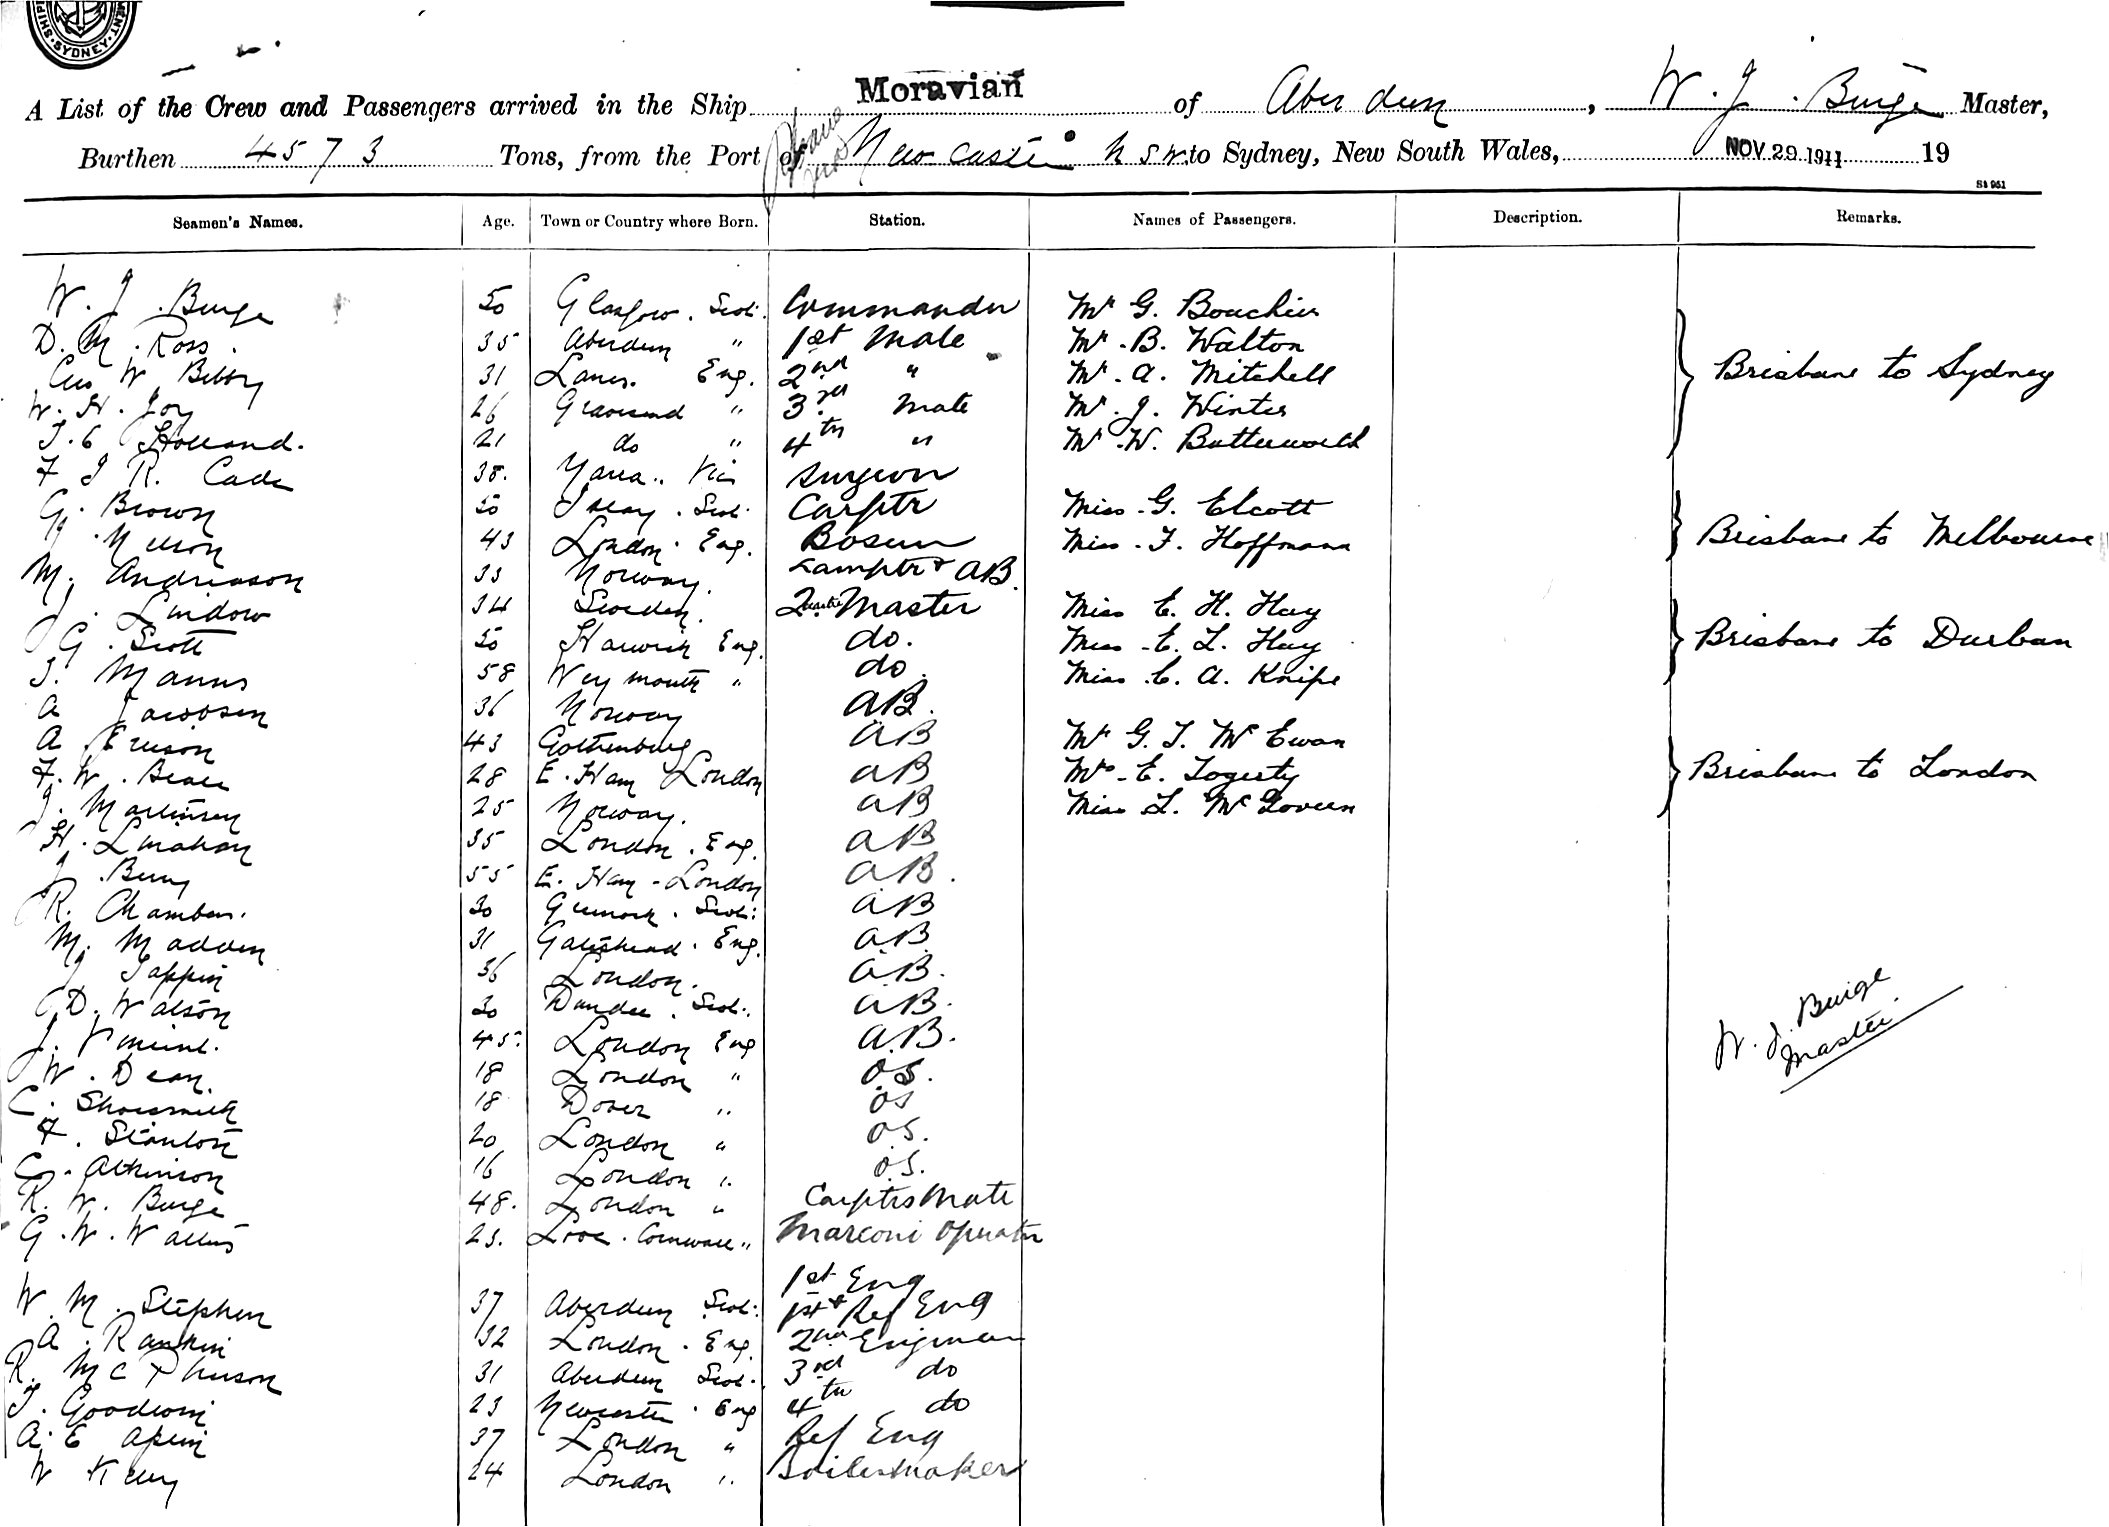 SYDNEY
A List of the Crew and Passengers arrived in the Ship Moravian of Aberdeen, W. J. Burge Master,
Burthen 4573 Tons, from the Port of Newcastle N S W. to Sydney, New South Wales, NOV 29 1911 19
St 961
Seamen's Names. Age. Town or Country where Born. Station. Names of Passengers. Description. Remarks.
W. J. Burge 50 Glasgow. Scot. Commander Mr G. Bouchier
D. M. Ross. 35 Aberdeen " 1st Mate Mr. B. Walton
W. Bibby 31 Lancs. Eng. 2nd " Mr. A. Mitchell Brisbane to Sydney
W. H. Joy 26 Gravesend " 3rd Mate Mr. J. Winter
T. E Holland. 21 do " 4th " Mr. W. Butterworth
F J R. Cade 38. Yarra.. Vic Surgeon
G. Brown 50 Islay. Scot. Carptr Miss. G. Elcott
J. Neilson 43 London. Eng. Bosun Miss. F. Hoffmann Brisbane to Melbourne
M. Andreason 33 Norway. Lamptr & AB.
J. Lindow 34 Sweden. Quarter Master Miss E. H. Hay
G. Scott 50 Harwich Eng. do. Miss. E. L. Hay Brisbane to Durban
T. Manns 58 Weymouth " do. Miss. C. A. Knipe
A Jacobsen 36 Norway AB.
A Ericson 43 Gothenburg AB Mr G. T. McEwan
F. W. 28 E. Ham London AB E. Fogerty Brisbane to London
J. Martinsen 25 Norway. AB Miss L. McGovern
H. Linahan 35 London. Eng. AB
J. Berry 55 E. Ham - London AB.
R. Chambers. 30 Greenock. Scot: AB
M. Madden 31 Gateshead. Eng. A.B.
J. Tappin 36 London. A.B.
D. Watson 30 Dundee. Scot. A.B.
J. Vincent. 45. London Eng A.B.
W. Dean. 18 London " O.S.
C. Shoesmith 18 Dover " OS
F. Stanton 20 London " O.S.
C. Atkinson 16 London " O.S.
R. W. Burge 48. London " Carptrs Mate
G. W. Wallis 23. Looe. Cornwall " Marconi Operator
1st Eng
W. M. Stephen 37 Aberdeen Scot. 1st & Ref Eng
A. Rankin 32 London. Eng. 2nd Engineer
R. McPherson 31 Aberdeen Scot. 3rd do
T. Goodwin 23 Newcastle. Eng 4th do
A. E 37 London " Ref Eng
W Kelly 24 London " Boilermaker
W. J. Burge
Master.